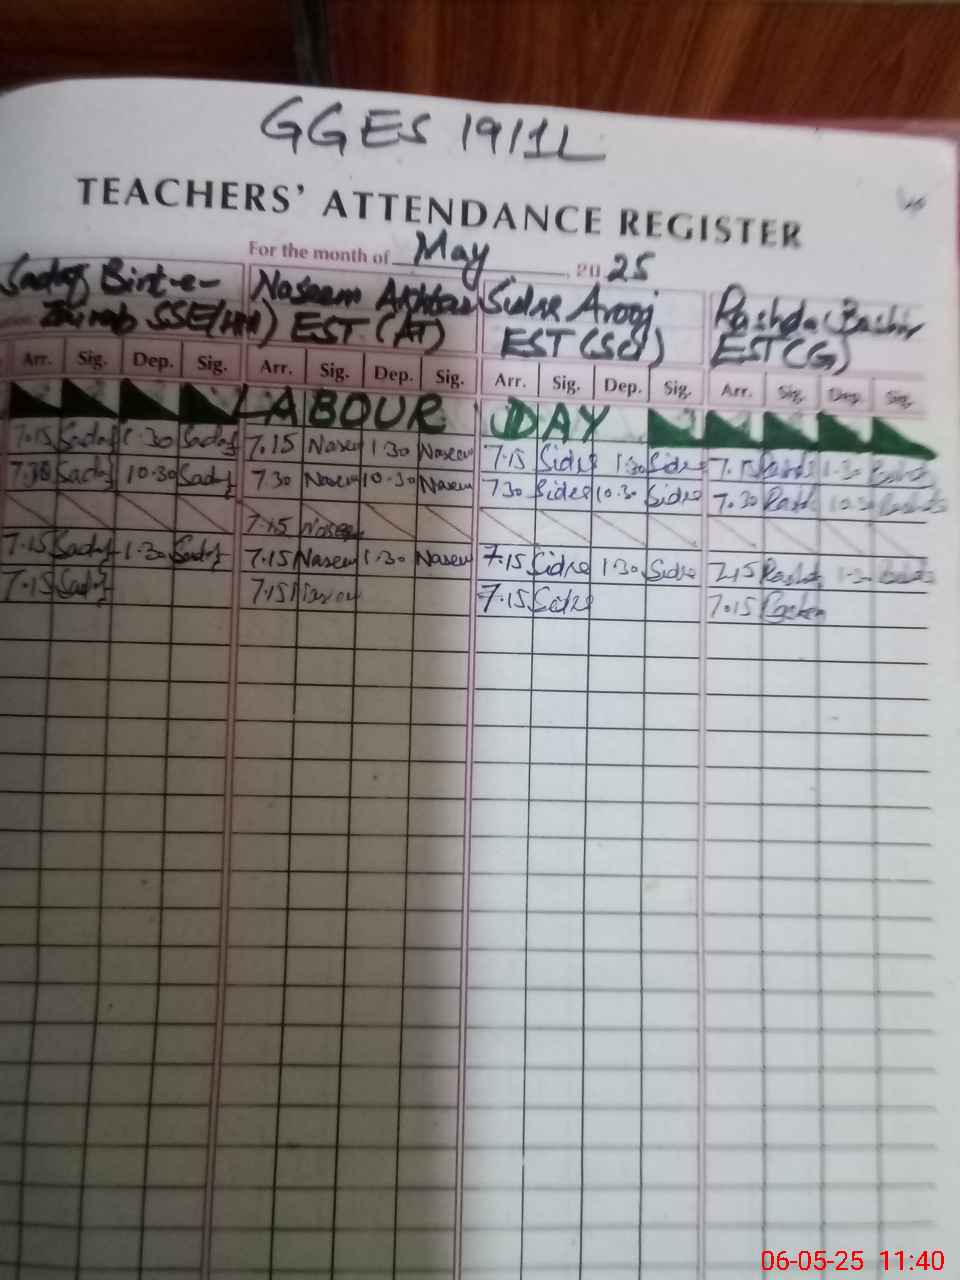 GGES 19/1L
TEACHERS' ATTENDANCE REGISTER
For the month of May, 2025
Sadaf Bint-e- Naseem Akhtar Sidra Arooj Rashda Bashir
Zainab SSE(HM) EST (AT) EST (Sci) EST (G)
Arr. Sig. Dep. Sig. Arr. Sig. Dep. Sig. Arr. Sig. Dep. Sig. Arr. Sig. Dep. Sig.
LABOUR DAY
7.15 Sadaf 1.30 Sadaf 7.15 Naseem 1.30 Naseem 7.15 Sidra 1.30 Sidra 7.15 1.30
7.30 Sadaf 10.30 Sadaf 7.30 Naseem 10.30 Naseem 7.30 Sidra 10.30 Sidra 7.30 10.30
7.15 Naseem
7.15 Sadaf 1.30 Sadaf 7.15 Naseem 1.30 Naseem 7.15 Sidra 1.30 Sidra 7.15 1.30
7.15 Sadaf 7.15 Naseem 7.15 Sidra 7.15
06-05-25 11:40